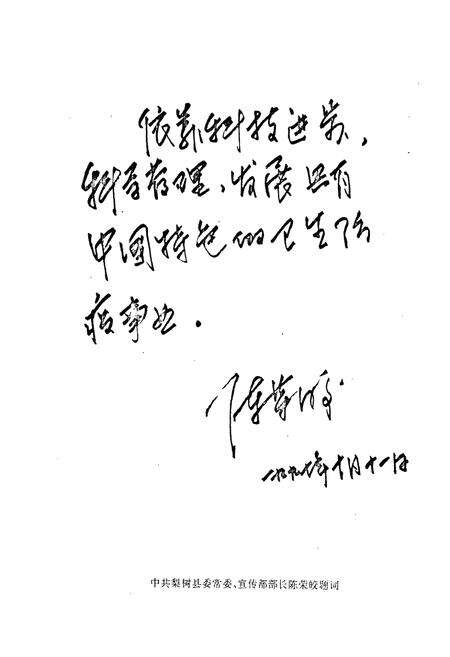 依靠科技进步，
科学管理，发展具有
中国特色的卫生防
疫事业。
陈荣皎
一九九七年十月十一日
中共梨树县委常委、宣传部部长陈荣皎题词